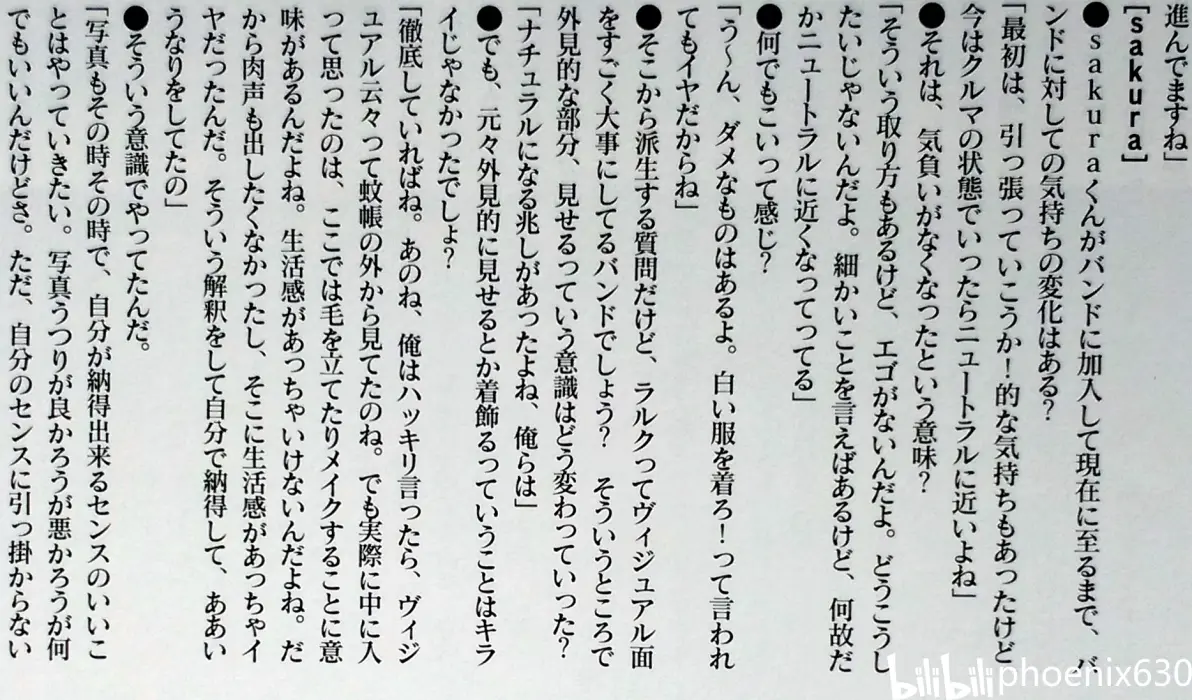 進んでますね」
[sakura]
●sakuraくんがバンドに加入して現在に至るまで、バ
ンドに対しての気持ちの変化はある？
「最初は、引っ張っていこうか！的な気持ちもあったけど
今はクルマの状態でいったらニュートラルに近いよね」
●それは、気負いがなくなったという意味？
「そういう取り方もあるけど、エゴがないんだよ。どうこうし
たいじゃないんだよ。細かいことを言えばあるけど、何故だ
かニュートラルに近くなってってる」
●何でもこいって感じ？
「う〜ん、ダメなものはあるよ。白い服を着ろ！って言われ
てもイヤだからね」
●そこから派生する質問だけど、ラルクってヴィジュアル面
をすごく大事にしてるバンドでしょう？　そういうところで
外見的な部分、見せるっていう意識はどう変わっていった？
「ナチュラルになる兆しがあったよね、俺らは」
●でも、元々外見的に見せるとか着飾るっていうことはキラ
イじゃなかったでしょ？
「徹底していればね。あのね、俺はハッキリ言ったら、ヴィジ
ュアル云々って蚊帳の外から見てたのね。でも実際に中に入
って思ったのは、ここでは毛を立てたりメイクすることに意
味があるんだよね。生活感があっちゃいけないんだよね。だ
から肉声も出したくなかったし、そこに生活感があっちゃイ
ヤだったんだ。そういう解釈をして自分で納得して、ああい
うなりをしてたの」
●そういう意識でやってたんだ。
「写真もその時その時で、自分が納得出来るセンスのいいこ
とはやっていきたい。写真うつりが良かろうが悪かろうが何
でもいいんだけどさ。ただ、自分のセンスに引っ掛からない
bilibili phoenix630